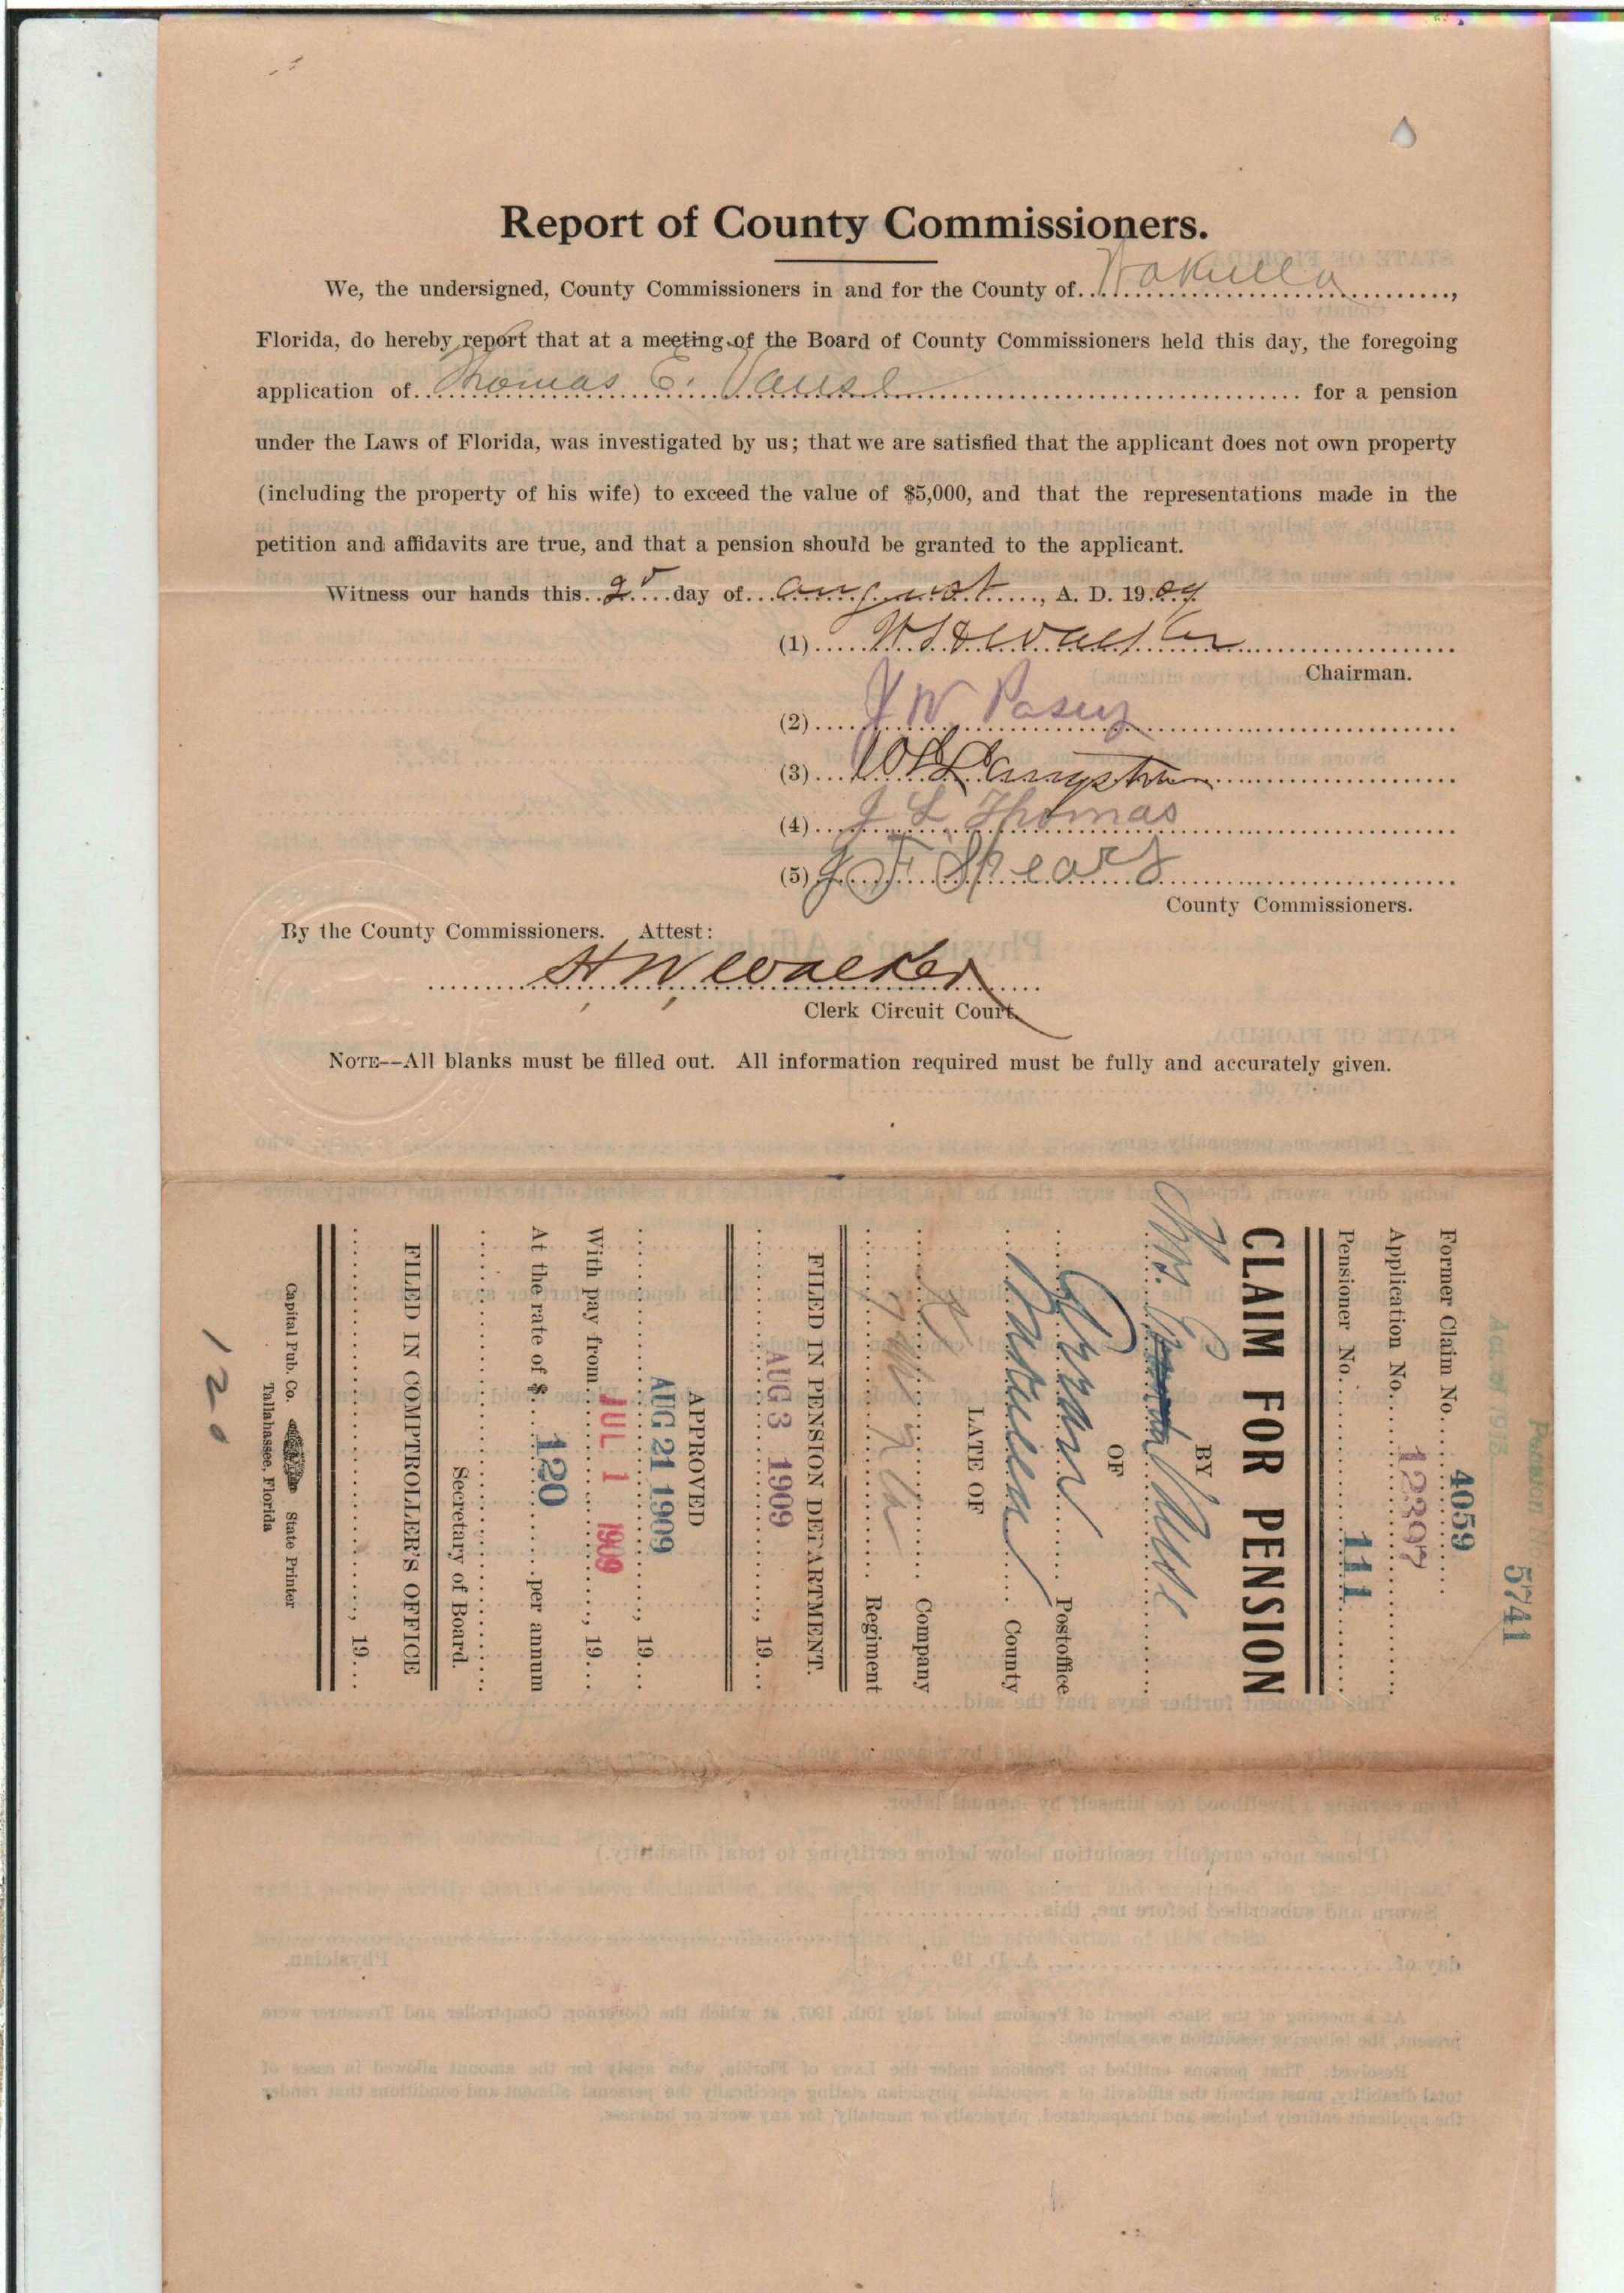 Report of County Commissioners.
We, the undersigned, County Commissioners in and for the County of Wakulla,
Florida, do hereby report that at a meeting of the Board of County Commissioners held this day, the foregoing
application of Thomas E. Vause for a pension
under the Laws of Florida, was investigated by us; that we are satisfied that the applicant does not own property
(including the property of his wife) to exceed the value of $5,000, and that the representations made in the
petition and affidavits are true, and that a pension should be granted to the applicant.
Witness our hands this 2 day of August, A. D. 1909
(1) Walker
Chairman.
(2) W Posey
(3) Langston
(4) J L Thomas
(5) J F Spears
County Commissioners.
By the County Commissioners. Attest:
H. W. Walker
Clerk Circuit Court.
NOTE--All blanks must be filled out. All information required must be fully and accurately given.
5741
Former Claim No. 4059
Application No. 12397
Pensioner No. 111
CLAIM FOR PENSION
BY
Vause
OF
Postoffice
County
LATE OF
Company
Regiment
FILED IN PENSION DEPARTMENT.
AUG 3 1909, 19
APPROVED
AUG 21 1909, 19
With pay from JUL 1 1909, 19
At the rate of $ 120 per annum
Secretary of Board.
FILED IN COMPTROLLER'S OFFICE
, 19
Capital Pub. Co. State Printer
Tallahassee, Florida
120